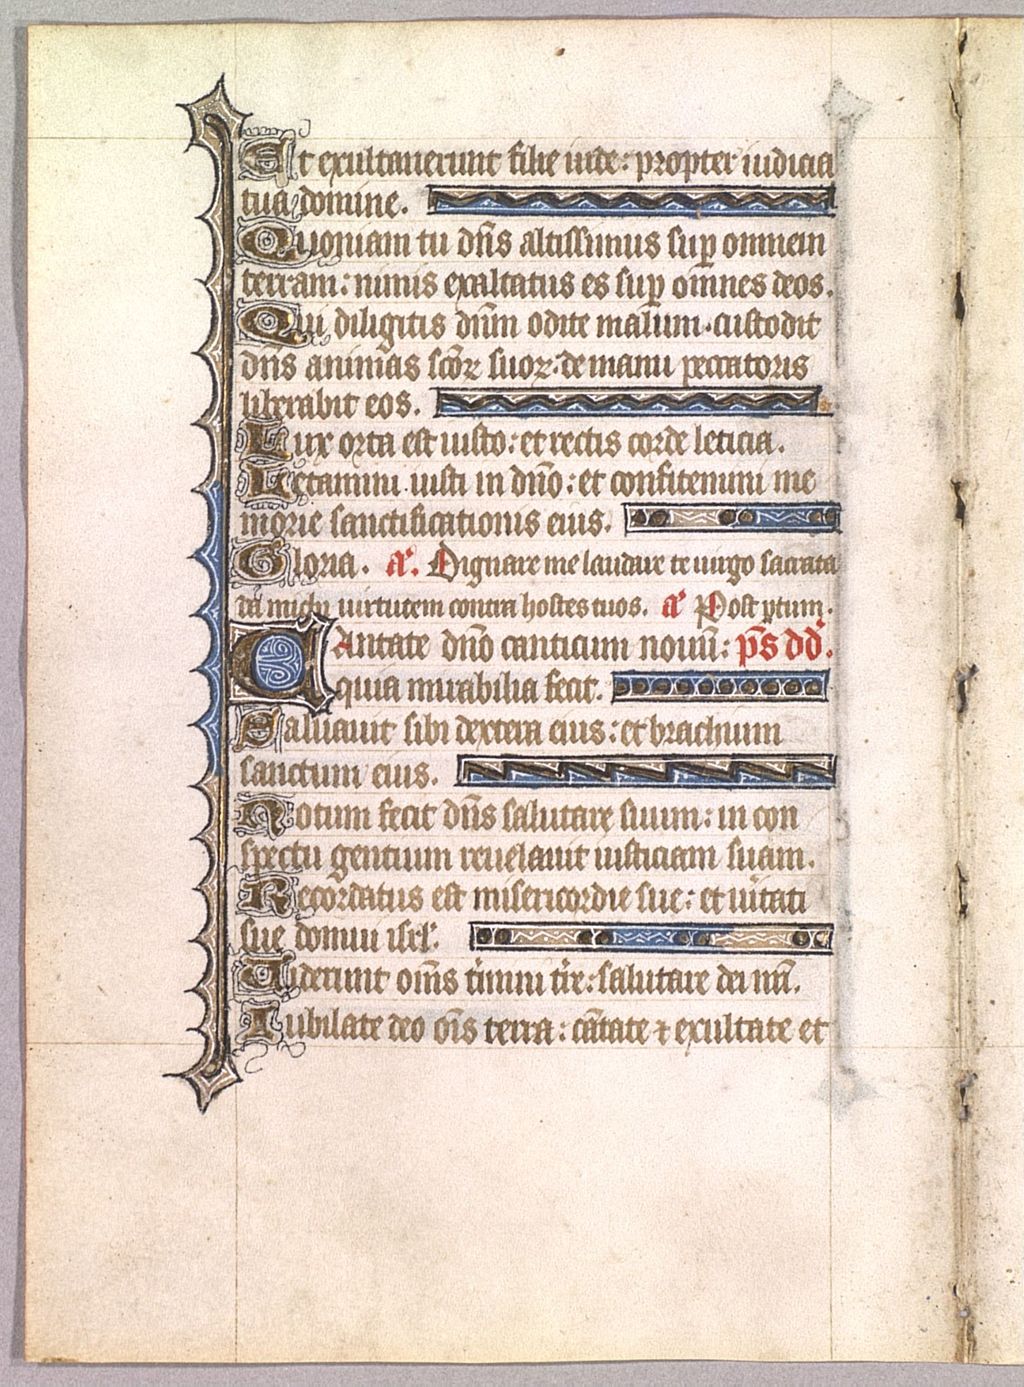 Et exultauerunt filie iude: propter iudicia
tua domine.
Quoniam tu dn̄s altissimus sup̱ omnem
terram: nimis exaltatus es sup̱ om̄nes deos.
Qui diligitis dn̄m odite malum. custodit
dn̄s anim̄as sc̄oꝝ suoꝝ. de manu peccatoris
liberabit eos.
Lux orta est iusto: et rectis corde leticia.
Letamini iusti in dn̄o: et confitemini me
morie sanctificationis eius.
Gloria. a᷑. Dignare me laudare te uirgo sacrata
da michi uirtutem contra hostes tuos. a᷑ Post ꝑtum.
Cantate dn̄o canticum nouū: p̄s dd̄.
quia mirabilia fecit.
Saluauit sibi dextera eius: et brachium
sanctum eius.
Notum fecit dn̄s salutare suum: in con
spectu gentium reuelauit iusticiam suam.
Recordatus est misericordie sue: et ūitati
sue domui isrl̄.
Uiderunt om̄s t̄mini t̄re: salutare dei nr̄i.
Iubilate deo om̄s terra: cātate ⁊ exultate et